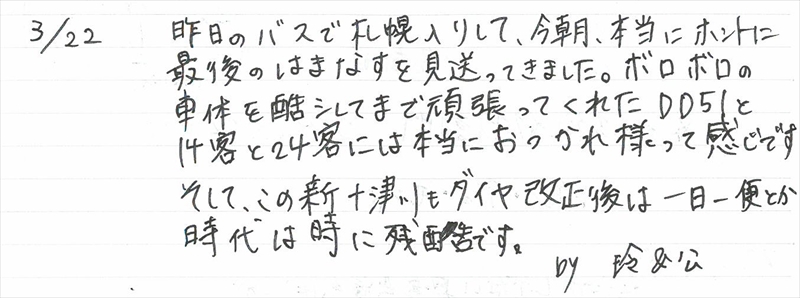 3/22 昨日のバスで札幌入りして、今朝、本当にホントに
最後のはまなすを見送ってきました。ボロボロの
車体を酷シしてまで頑張ってくれたDD51と
14客と24客には本当におつかれ様って感じです
そして、この新十津川もダイヤ改正後は一日一便とか
時代は時に残酷です。
by 玲&公